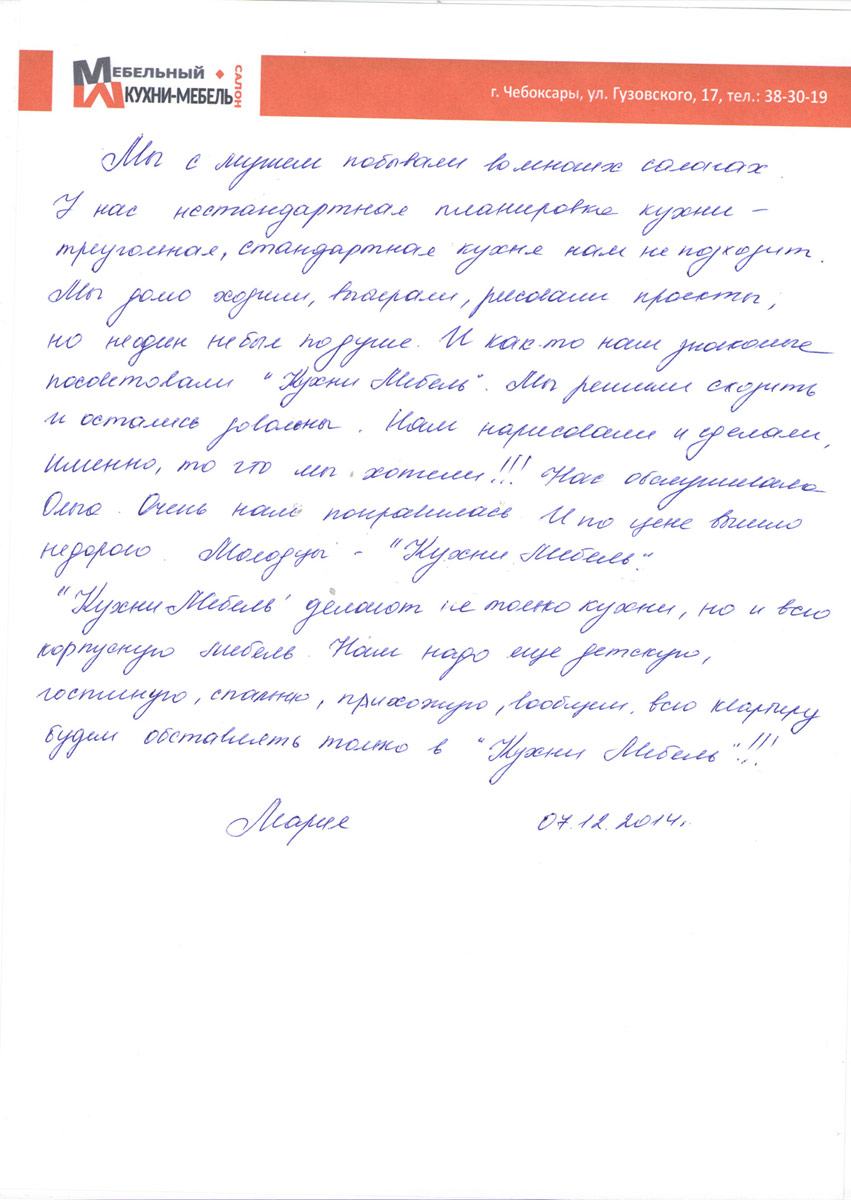 МЕБЕЛЬНЫЙ
САЛОН
КУХНИ-МЕБЕЛЬ
г. Чебоксары, ул. Гузовского, 17, тел.: 38-30-19
Мы с мужем побывали во многих салонах.
У нас нестандартная планировка кухни –
треугольная, стандартная кухня нам не подходит.
Мы долго ходили, выбирали, рисовали проекты,
но неодин небыл по душе. И как-то нам знакомые
посоветовали "Кухни Мебель". Мы решили сходить
и остались довольны. Нам нарисовали и сделали,
именно, то что мы хотели!!! Нас обслуживала
Ольга. Очень нам понравилась. И по цене вышло
недорого. Молодцы – "Кухни Мебель".
"Кухни Мебель" делают не только кухни, но и всю
корпусную мебель. Нам надо еще детскую,
гостиную, спальню, прихожую, вообщем, всю квартиру
будем обставлять только в "Кухни Мебель"!!!
Мария 07.12.2014г.